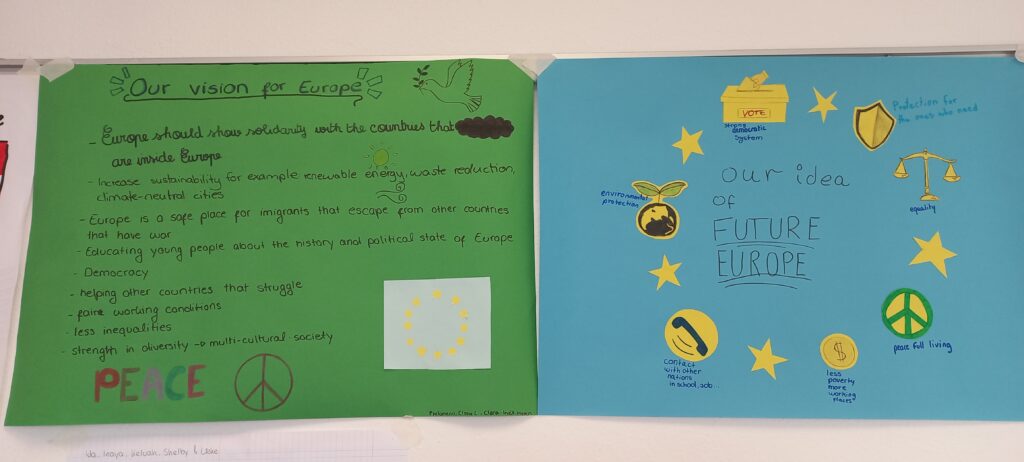 Our vision for Europe
- Europe should show solidarity with the countries that
are inside Europe
- Increase sustainability for example renewable energy, waste reduction,
climate-neutral cities
- Europe is a safe place for imigrants that escape from other countries
that have war
- Educating young people about the history and political state of Europe
- Democracy
- helping other countries that struggle
- faire working conditions
- less inequalities
- strength in diversity → multi-cultural society
PEACE
our idea
of
FUTURE
EUROPE
VOTE
strong
democratic
system
Protection for
the ones who need
equality
peace full living
$
less
poverty
more
working
places
contact
with other
nations
in school, job...
environmental
protection
Shelby &